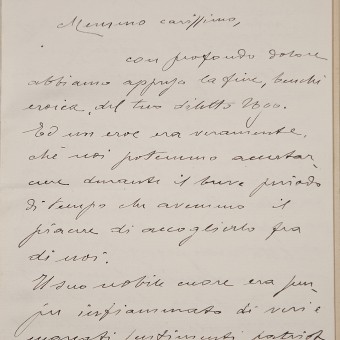 Memmo carissimo,
con profondo dolore
abbiamo appreso la fine, benché
eroica, del tuo diletto Ugo.
Ed un eroe era veramente,
ché noi potemmo accertar-
cene durante il breve periodo
di tempo che avemmo il
piacere di accoglierlo fra
di noi.
Il suo nobile cuore era pur
infiammato di veri e
sentimenti